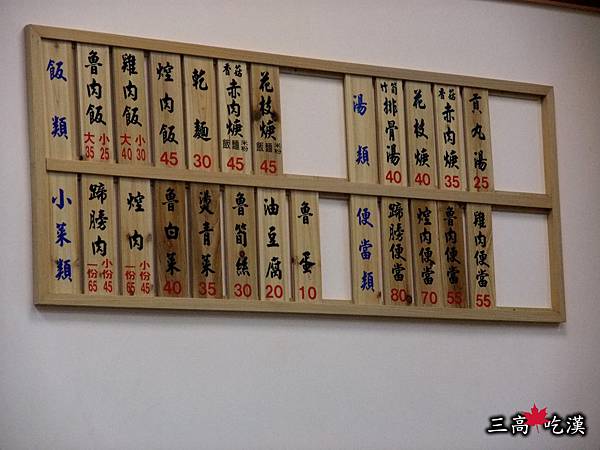 飯類
魯肉飯 大35 小25
雞肉飯 大40 小30
焢肉飯 45
乾麵 30
香菇赤肉焿 飯麵米粉 45
花枝焿 飯麵米粉 45
湯類
竹筍排骨湯 40
花枝焿 40
香菇赤肉焿 35
貢丸湯 25
小菜類
蹄膀肉 一份65 小份45
焢肉 一份65 小份45
魯白菜 40
燙青菜 35
魯筍絲 30
油豆腐 20
魯蛋 10
便當類
蹄膀便當 80
焢肉便當 70
魯肉便當 55
雞肉便當 55
三高吃漢